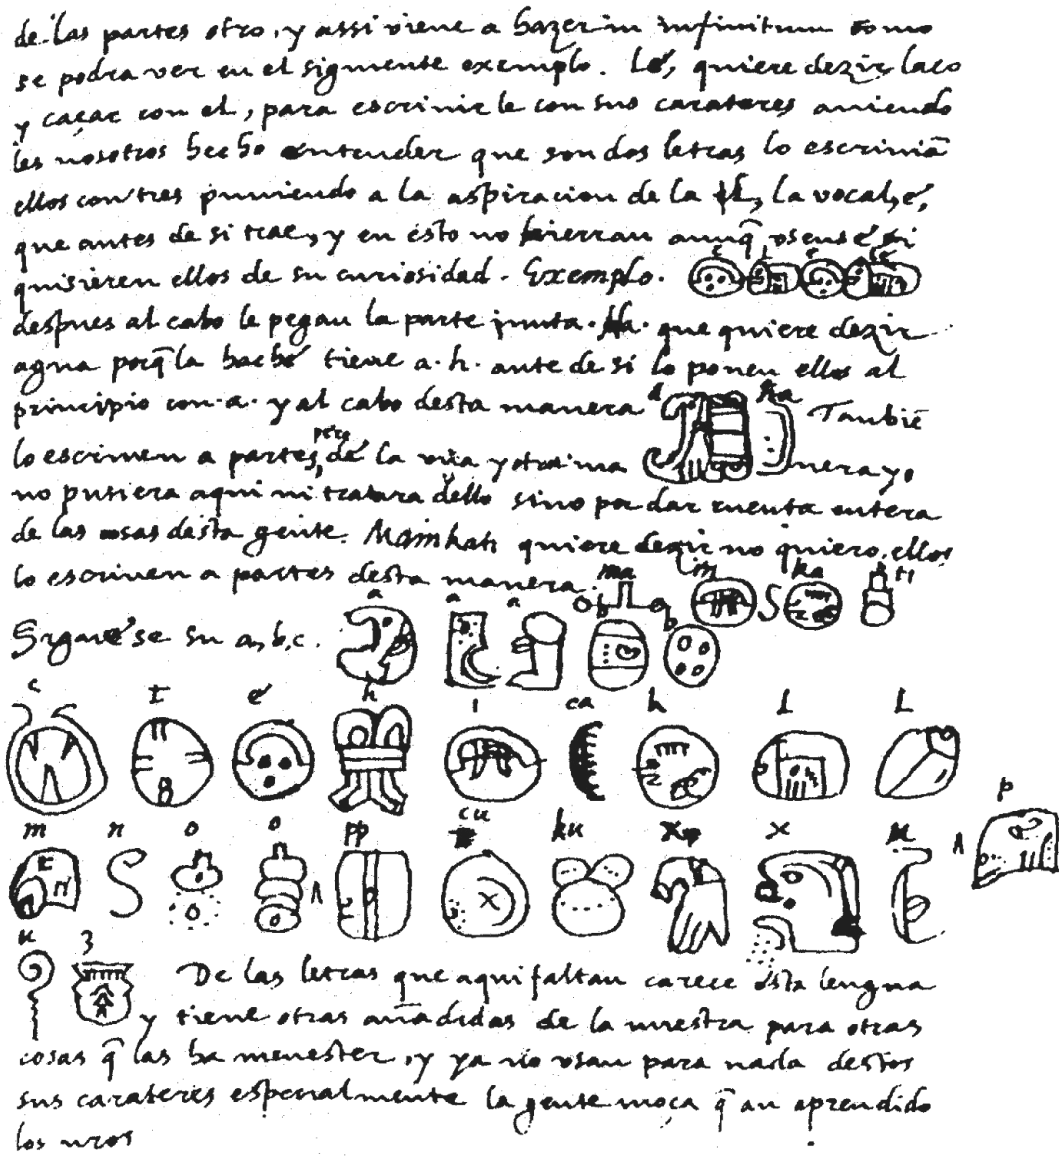 de las partes otro, y assi viene a hazer in infinitum como
se podra ver en el siguiente exemplo. Lé, quiere dezir laço
y caçar con el, para escrivirle con sus carateres aviendo
les nosotros hecho entender que son dos letras lo escriviã
ellos con tres puniendo a la aspiracion de la l, la vocal, é,
que antes de si trae, y en esto no hierran aunq̃ osense si
quisieren ellos de su curiosidad. Exemplo. e l e le
despues al cabo le pegan la parte junta. Ha. que quiere dezir
agua porq̃ la haché tiene a.h. ante de si lo ponen ellos al
principio con a. y al cabo desta manera a ha Tambiẽ
lo escriven a partes, pero de la una y otra ma nera yo
no pusiera aqui ni tratara dello sino por dar cuenta entera
de las cosas desta gente. Mainkati quiere dezir no quiero, ellos
lo escriven a partes desta manera. ma i n ka ti
Siguese su a, b, c. a a a b b
c t é h i ca k l l
m n o o pp cu ku x x u p
u z De las letras que aqui faltan carece esta lengua
y tiene otras añadidas de la nuestra para otras
cosas q̃ las ha menester, y ya no usan para nada destos
sus carateres especialmente la gente moça q̃ an aprendido
los nros